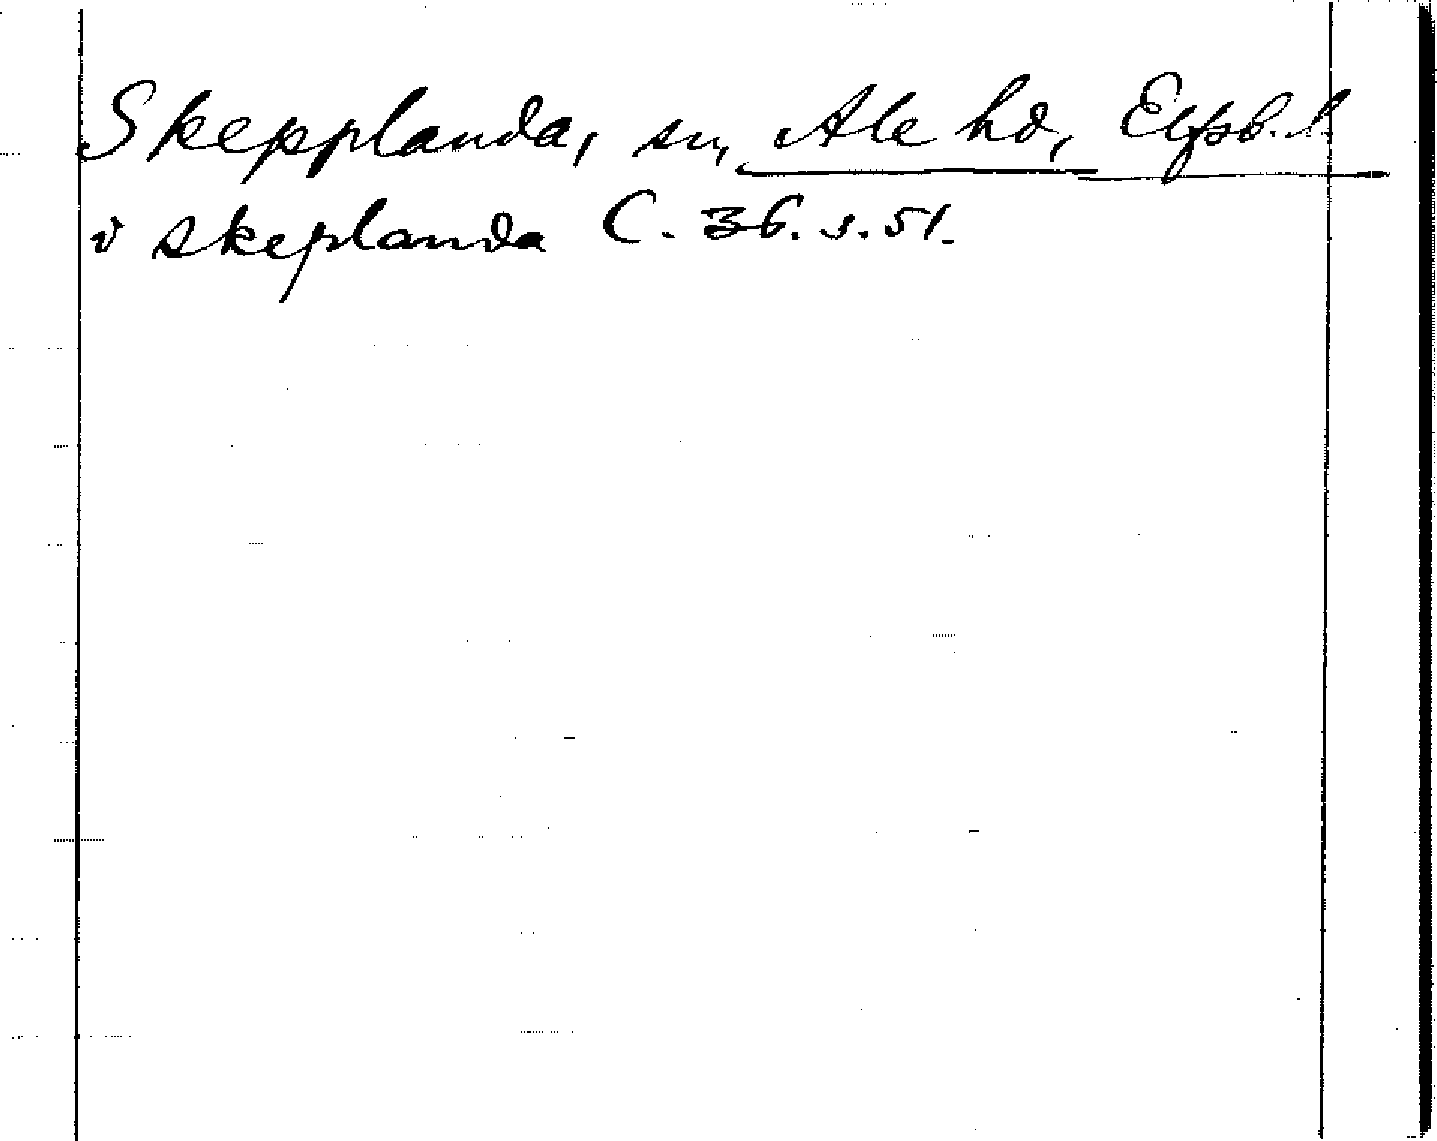 Skepplanda, sn, Ale hd, Elfsb. l.
v skeplanda C. 36. s. 51.